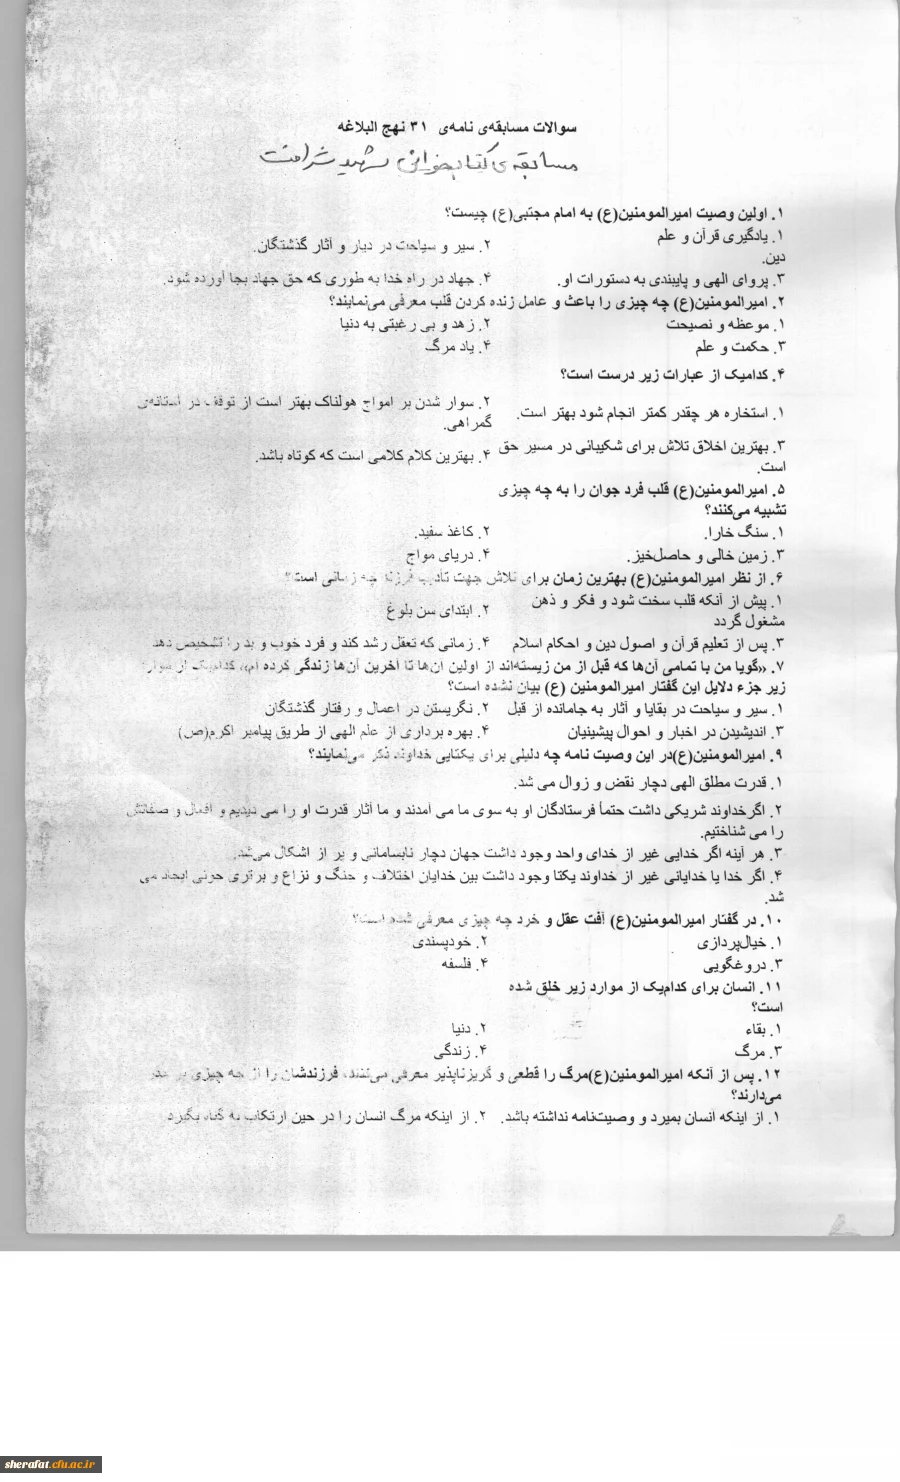 سوالات مسابقه‌ی نامه‌ی ۳۱ نهج البلاغه
مسابقه ی کتابخوانی شهید شرافت
۱. اولین وصیت امیرالمومنین(ع) به امام مجتبی(ع) چیست؟
۱. یادگیری قرآن و علم دین. ۲. سیر و سیاحت در دیار و آثار گذشتگان.
۳. پروای الهی و پایبندی به دستورات او. ۴. جهاد در راه خدا به طوری که حق جهاد بجا آورده شود.
۲. امیرالمومنین(ع) چه چیزی را باعث و عامل زنده کردن قلب معرفی می‌نمایند؟
۱. موعظه و نصیحت ۲. زهد و بی رغبتی به دنیا
۳. حکمت و علم ۴. یاد مرگ
۴. کدامیک از عبارات زیر درست است؟
۱. استخاره هر چقدر کمتر انجام شود بهتر است. ۲. سوار شدن بر امواج هولناک بهتر است از توقف در آستانه‌ی گمراهی.
۳. بهترین اخلاق تلاش برای شکیبائی در مسیر حق است. ۴. بهترین کلام کلامی است که کوتاه باشد.
۵. امیرالمومنین(ع) قلب فرد جوان را به چه چیزی
تشبیه می‌کنند؟
۱. سنگ خارا. ۲. کاغذ سفید.
۳. زمین خالی و حاصل‌خیز. ۴. دریای مواج
۶. از نظر امیرالمومنین(ع) بهترین زمان برای تلاش جهت تأدیب فرزند چه زمانی است؟
۱. پیش از آنکه قلب سخت شود و فکر و ذهن مشغول گردد ۲. ابتدای سن بلوغ
۳. پس از تعلیم قرآن و اصول دین و احکام اسلام ۴. زمانی که تعقل رشد کند و فرد خوب و بد را تشخیص دهد
۷. «گویا من با تمامی آن‌ها که قبل از من زیسته‌اند از اولین آن‌ها تا آخرین آن‌ها زندگی کرده ام»، کدامیک از موارد
زیر جزء دلایل این گفتار امیرالمومنین (ع) بیان نشده است؟
۱. سیر و سیاحت در بقایا و آثار به جامانده از قبل ۲. نگریستن در اعمال و رفتار گذشتگان
۳. اندیشیدن در اخبار و احوال پیشینیان ۴. بهره برداری از علم الهی از طریق پیامبر اکرم(ص)
۹. امیرالمومنین(ع)در این وصیت نامه چه دلیلی برای یکتایی خداوند ذکر می‌نمایند؟
۱. قدرت مطلق الهی دچار نقض و زوال می شد.
۲. اگرخداوند شریکی داشت حتماً فرستادگان او به سوی ما می آمدند و ما آثار قدرت او را می دیدیم و افعال و صفاتش
را می شناختیم.
۳. هر آینه اگر خدایی غیر از خدای واحد وجود داشت جهان دچار نابسامانی و پر از اشکال می‌شد.
۴. اگر خدا یا خدایانی غیر از خداوند یکتا وجود داشت بین خدایان اختلاف و جنگ و نزاع و برتری جوئی ایجاد می
شد.
۱۰. در گفتار امیرالمومنین(ع) آفت عقل و خرد چه چیزی معرفی شده است؟
۱. خیال‌پردازی ۲. خودپسندی
۳. دروغگویی ۴. فلسفه
۱۱. انسان برای کدام‌یک از موارد زیر خلق شده
است؟
۱. بقاء ۲. دنیا
۳. مرگ ۴. زندگی
۱۲. پس از آنکه امیرالمومنین(ع)مرگ را قطعی و گریزناپذیر معرفی می‌کنند، فرزندشان را از چه چیزی بر حذر
می‌دارند؟
۱. از اینکه انسان بمیرد و وصیت‌نامه نداشته باشد. ۲. از اینکه مرگ انسان را در حین ارتکاب به گناه بگیرد
sherafat.cfu.ac.ir